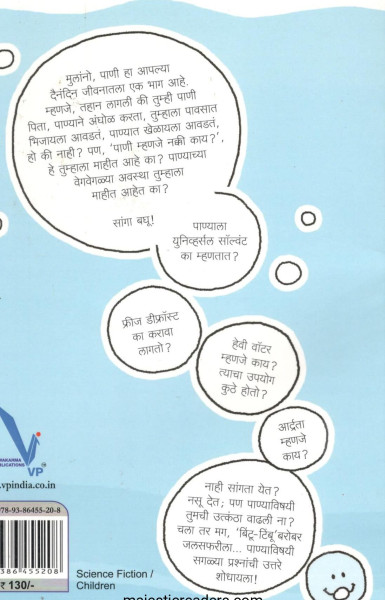 मुलांनो, पाणी हा आपल्या
दैनंदिन जीवनातला एक भाग आहे.
म्हणजे, तहान लागली की तुम्ही पाणी
पिता, पाण्याने अंघोळ करता, तुम्हाला पावसात
भिजायला आवडतं, पाण्यात खेळायला आवडतं,
हो की नाही? पण, 'पाणी म्हणजे नक्की काय?',
हे तुम्हाला माहीत आहे का? पाण्याच्या
वेगवेगळ्या अवस्था तुम्हाला
माहीत आहेत का?
सांगा बघू!
पाण्याला
युनिव्हर्सल सॉल्वंट
का म्हणतात?
फ्रीज डीफ्रॉस्ट
का करावा
लागतो?
हेवी वॉटर
म्हणजे काय?
त्याचा उपयोग
कुठे होतो?
आर्द्रता
म्हणजे
काय?
नाही सांगता येत?
नसू देत; पण पाण्याविषयी
तुमची उत्कंठा वाढली ना?
चला तर मग, 'बिंटू-टिंबू'बरोबर
जलसफरीला... पाण्याविषयी
सगळ्या प्रश्नांची उत्तरे
शोधायला!
VP
.vpindia.co.in
978-93-86455-20-8
386455208
₹ 130/-
Science Fiction /
Children